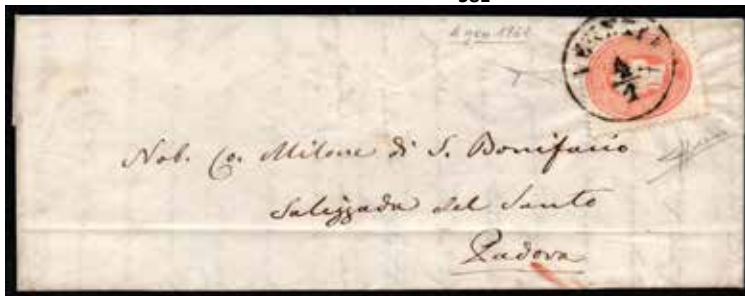 4 gen 1862
VENEZIA
4/1
Nob. Co. Milone di S. Bonifacio
Saliggada del Santo
Padova